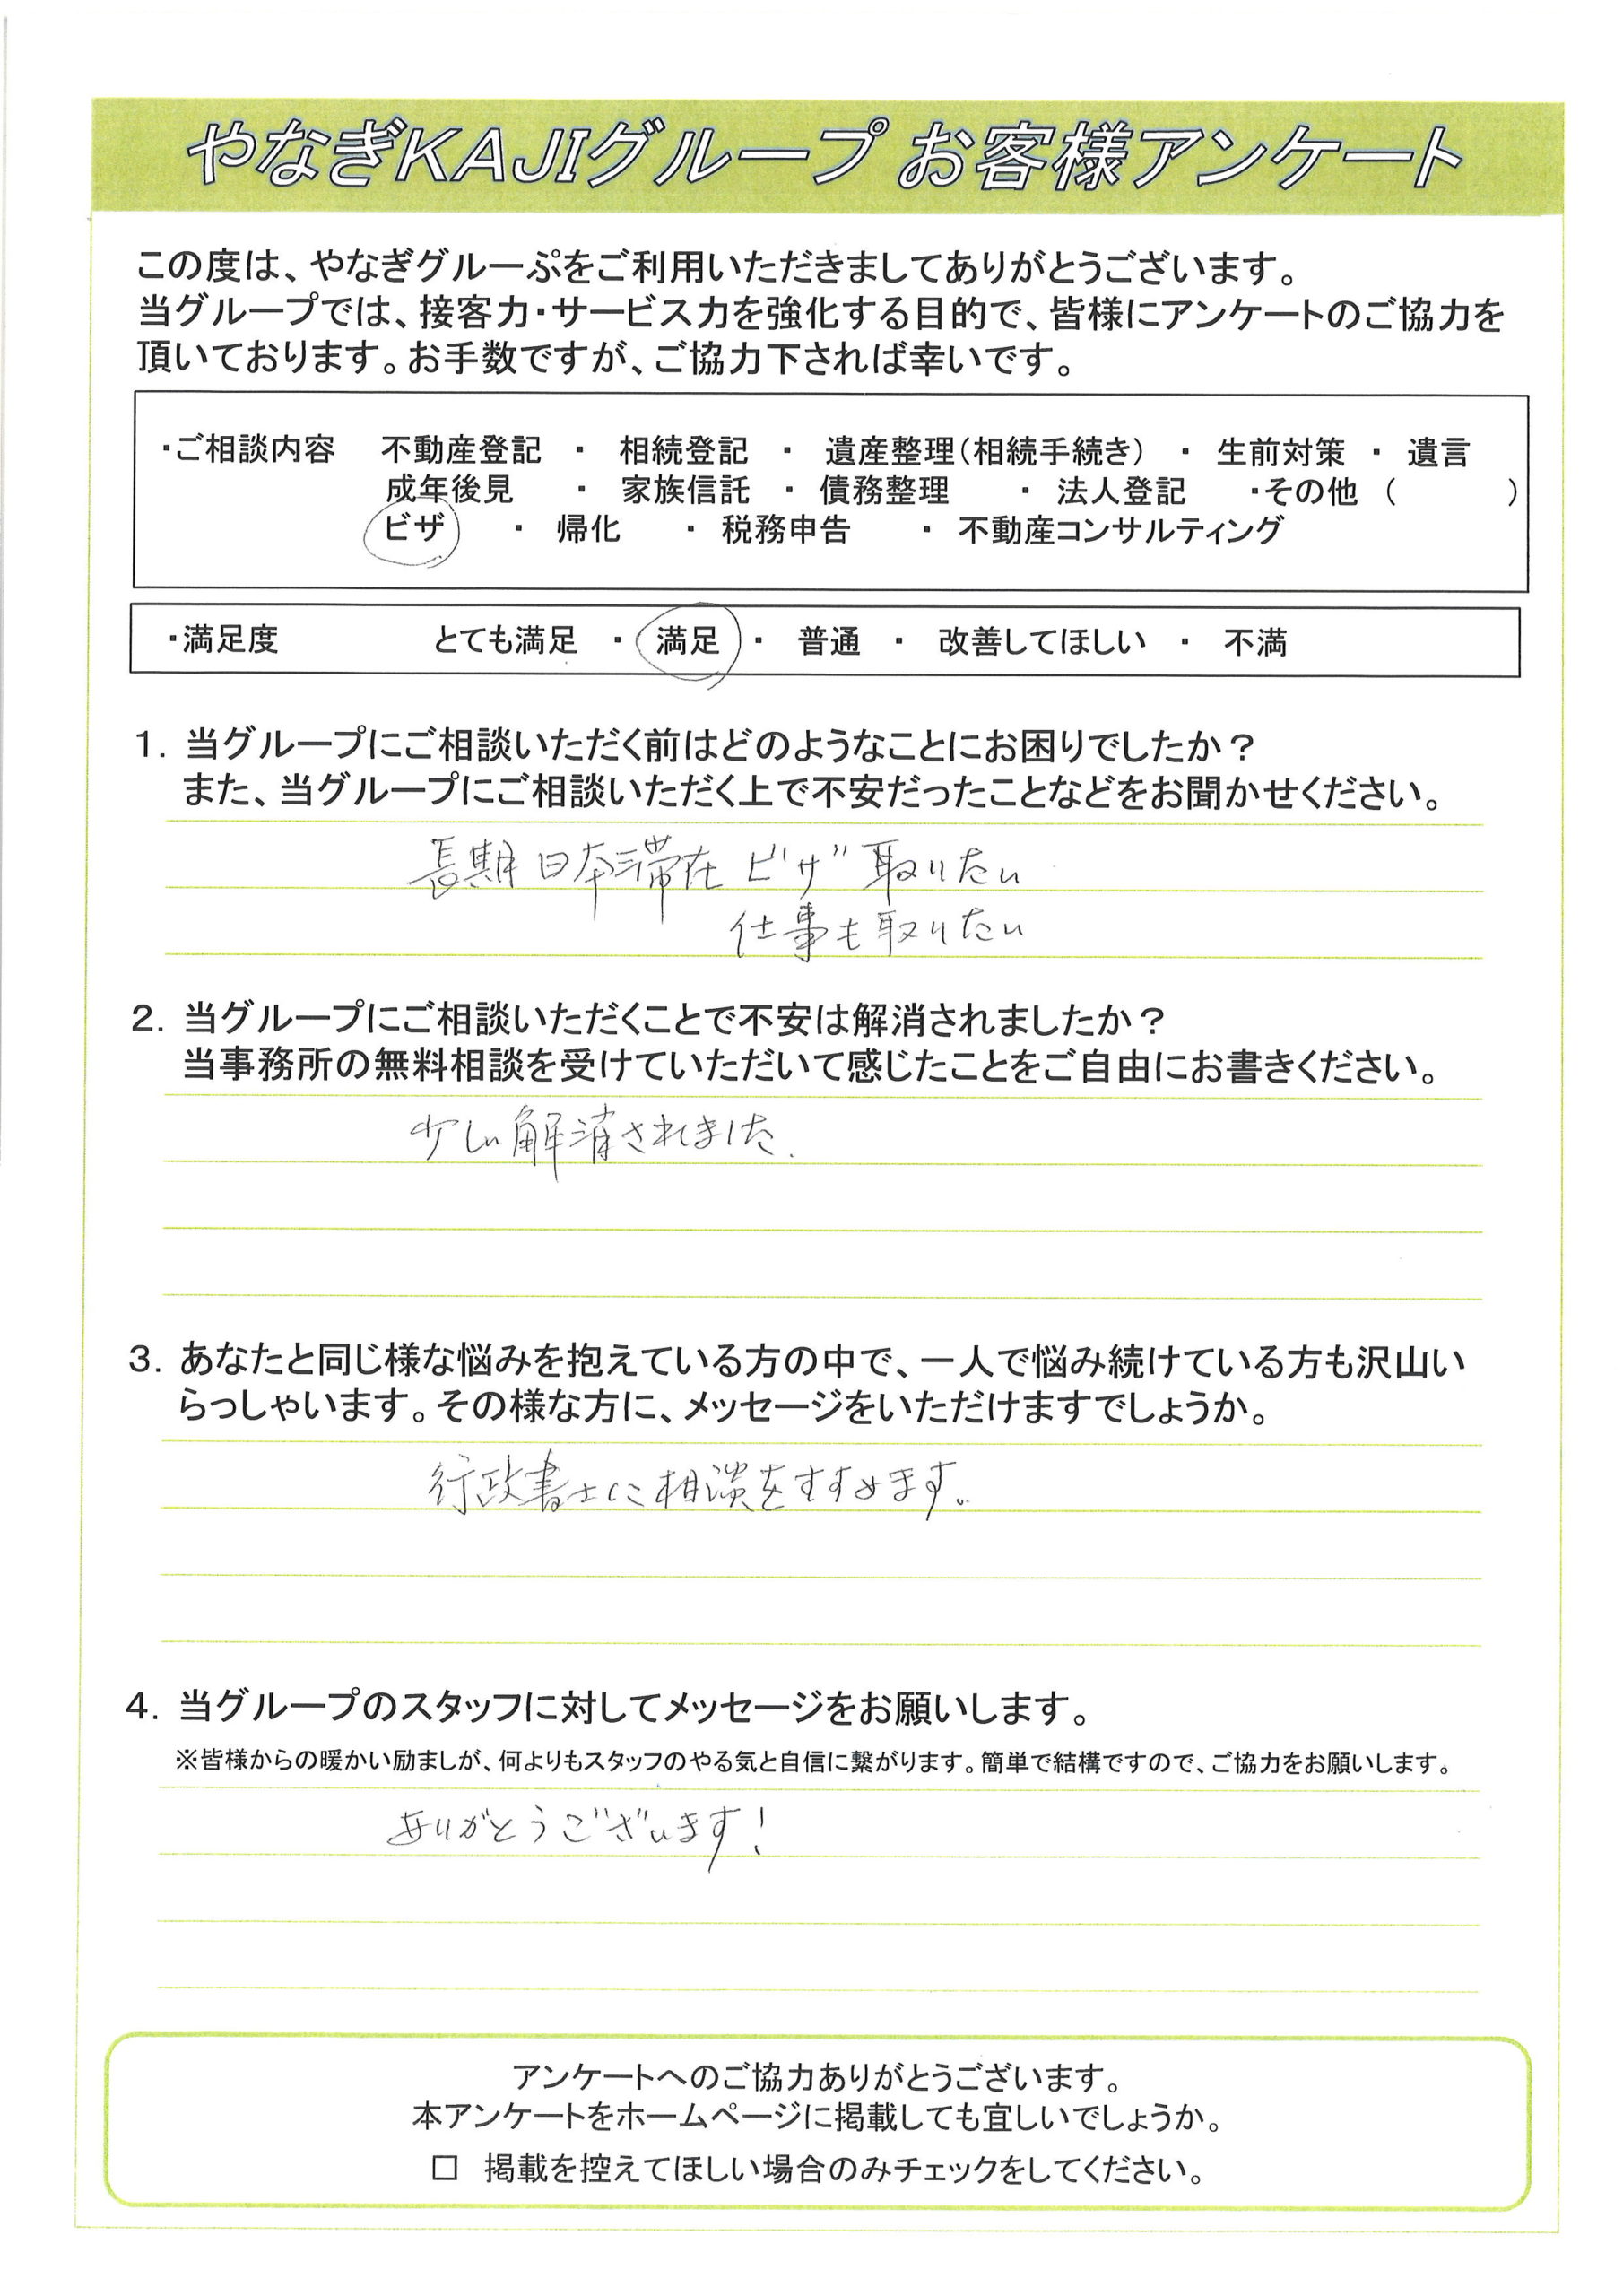 やなぎKAJIグループ お客様アンケート
この度は、やなぎグルーぷをご利用いただきましてありがとうございます。
当グループでは、接客力・サービス力を強化する目的で、皆様にアンケートのご協力を
頂いております。お手数ですが、ご協力下されば幸いです。
・ご相談内容 不動産登記 ・ 相続登記 ・ 遺産整理(相続手続き) ・ 生前対策 ・ 遺言
成年後見 ・ 家族信託 ・ 債務整理 ・ 法人登記 ・その他 ( )
ビザ ・ 帰化 ・ 税務申告 ・ 不動産コンサルティング
・満足度 とても満足 ・ 満足 ・ 普通 ・ 改善してほしい ・ 不満
1. 当グループにご相談いただく前はどのようなことにお困りでしたか?
また、当グループにご相談いただく上で不安だったことなどをお聞かせください。
長期日本滞在ビザ取りたい
仕事も取りたい
2. 当グループにご相談いただくことで不安は解消されましたか?
当事務所の無料相談を受けていただいて感じたことをご自由にお書きください。
少しい解消されました.
3. あなたと同じ様な悩みを抱えている方の中で、一人で悩み続けている方も沢山い
らっしゃいます。その様な方に、メッセージをいただけますでしょうか。
行政書士に相談をすすめます。
4. 当グループのスタッフに対してメッセージをお願いします。
※皆様からの暖かい励ましが、何よりもスタッフのやる気と自信に繋がります。簡単で結構ですので、ご協力をお願いします。
ありがとうございます!
アンケートへのご協力ありがとうございます。
本アンケートをホームページに掲載しても宜しいでしょうか。
□ 掲載を控えてほしい場合のみチェックをしてください。